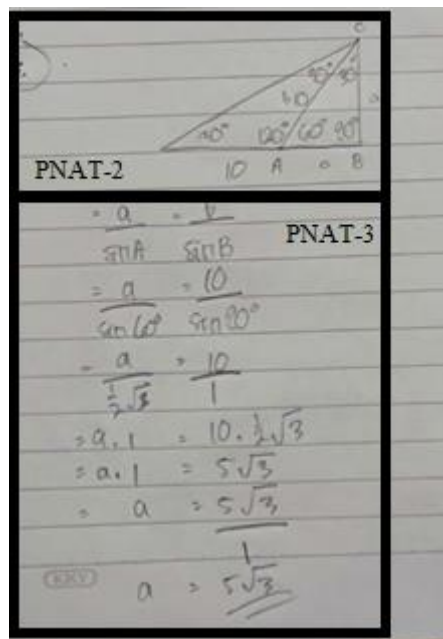 C
30° 30°
10
30° 120° 60° 90°
PNAT-2 10 A B
PNAT-3
= a = b
sin A sin B
= a = 10
sin 60° sin 90°
= a = 10
½√3 1
= a . 1 = 10 . ½√3
= a . 1 = 5√3
= a = 5√3
1
a = 5√3